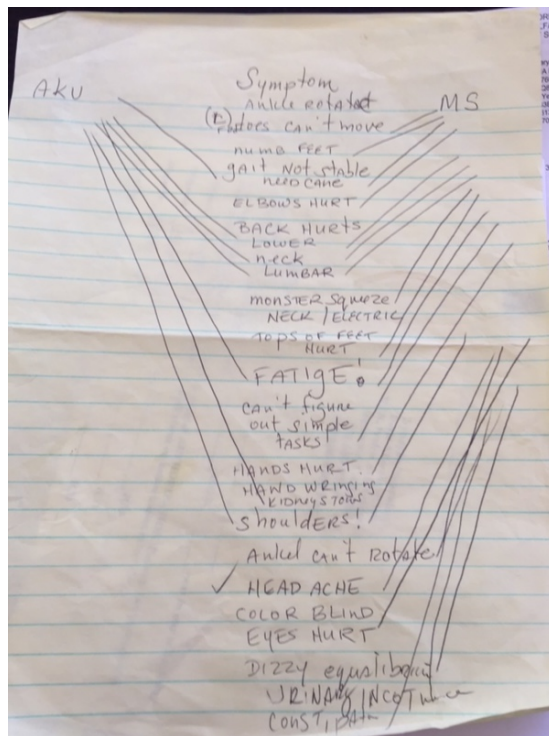 AKU
Symptom
MS
ANKLE ROTATED
toes can't move
numb FEET
gait NOT stable
need CANE
ELBOWS HURT
BACK HURTS
LOWER
neck
LUMBAR
monster squeze
NECK / ELECTRIC
TOPS OF FEET
HURT
FATIGE!
can't figure
out simple
tasks
HANDS HURT
HAND WRINGING
KIDNEY STONS
Shoulders!
Ankel can't Rotate
HEAD ACHE
COLOR BLIND
EYES HURT
DIZZY
URINARY